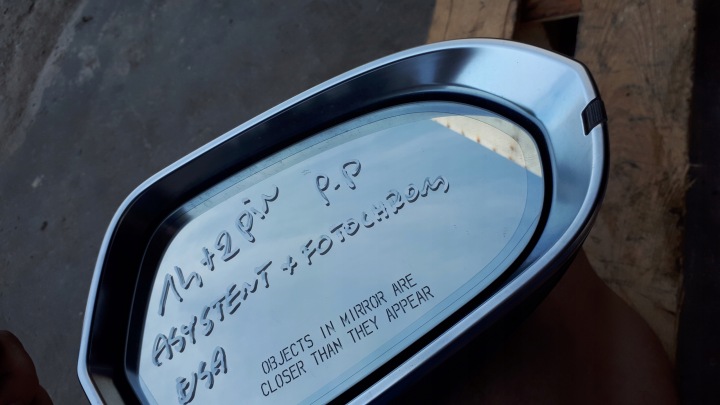 14+2 pin P.P
ASYSTENT + FOTOCHROM
USA
OBJECTS IN MIRROR ARE
CLOSER THAN THEY APPEAR